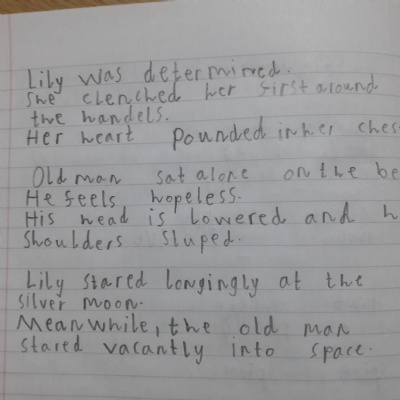 Lily was determined.
She clenched her first around
the handels.
Her heart pounded in her ches
Old man sat alone on the be
He feels hopeless.
His head is lowered and h
shoulders sluped.
Lily stared longingly at the
silver moon.
Meanwhile, the old man
stared vacantly into space.